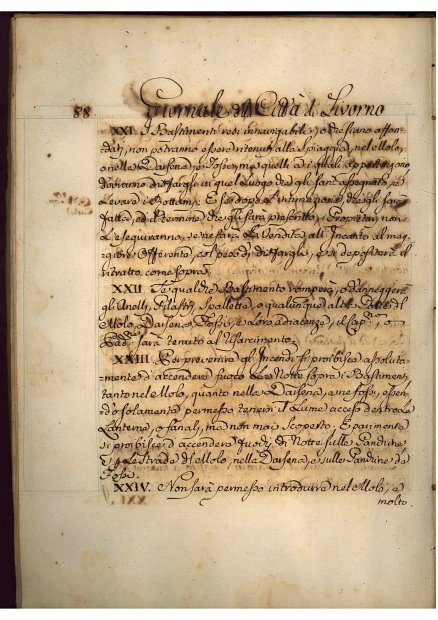 88 Giornale della Città di Livorno
XXI. I Bastimenti resi innavigabili, o che siano affon-
dati, non potranno essere tenuti alla Spiaggia, nel Molo,
o nella Darsena, e Fossi, ma quelli a i quali appartengono
dovranno disfargli in quel Luogo che gli sarà assegnato, e
Levare i Rottami. E se dopo l'intimazione che gli sarà
fatta, ed il Termine che gli sarà prescritto, i Proprietarj non
L'eseguiranno, se ne farà La Vendita all'Incanto al mag-
giore Offerente, col peso di disfargli, e si depositerà il
ritratto come sopra.
XXII. Se qualche Bastimento romperà, o danneggerà
gli Anelli, Pilastri, Spallette, o qualunque altra Parte del
Molo, Darsena, Fossi, e Loro adiacenze, il Cap.no, o
Padr.ne sarà tenuto al Risarcimento.
XXIII. Per prevenire gl'Incendj si proibisce assoluta-
mente d'accendere fuoco La Notte sopra i Bastimenti
tanto nel Molo, quanto nella Darsena, e ne' fossi, essen-
do solamente permesso tenervi il Lume acceso dentro a
Lanterne, o fanali, ma non mai scoperto. E parimente
si proibisce d'accender fuochi di Notte sulle Banchine,
e Le Strade del Molo, nella Darsena, e sulle Banchine de'
Fossi.
XXIV. Non sarà permesso introdurre nel Molo, e
molto